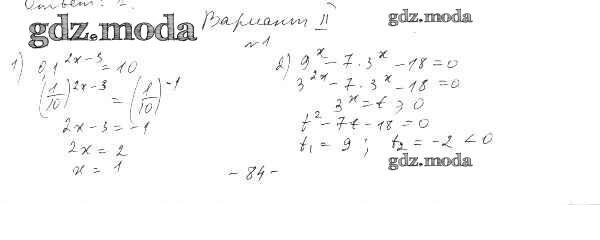 Ответ: 2.
gdz.moda
Вариант II
gdz.moda
№1
1) 0,1^{2x-3} = 10
(1/10)^{2x-3} = (1/10)^{-1}
2x-3 = -1
2x = 2
x = 1
2) 9^x - 7·3^x - 18 = 0
3^{2x} - 7·3^x - 18 = 0
3^x = t > 0
t^2 - 7t - 18 = 0
t_1 = 9 ; t_2 = -2 < 0
gdz.moda
- 84 -